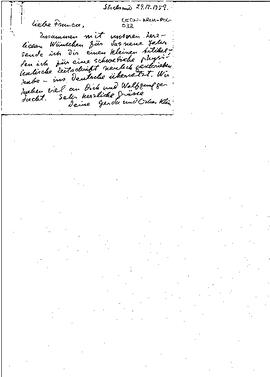 Stocksund 29.12.1959.
Liebe Franca,
Zusammen mit unseren herz-
lichen Wünschen für das neue Jahr
sende ich Dir einen kleinen Artikel
den ich für eine schwedische physi-
kalische Zeitschrift neulich geschrieben
habe - ins Deutsche übersetzt. Wir
haben viel an Dich und Wolfgang ge-
dacht. Sehr herzliche Grüsse
Deine Gerda und Oskar Klein